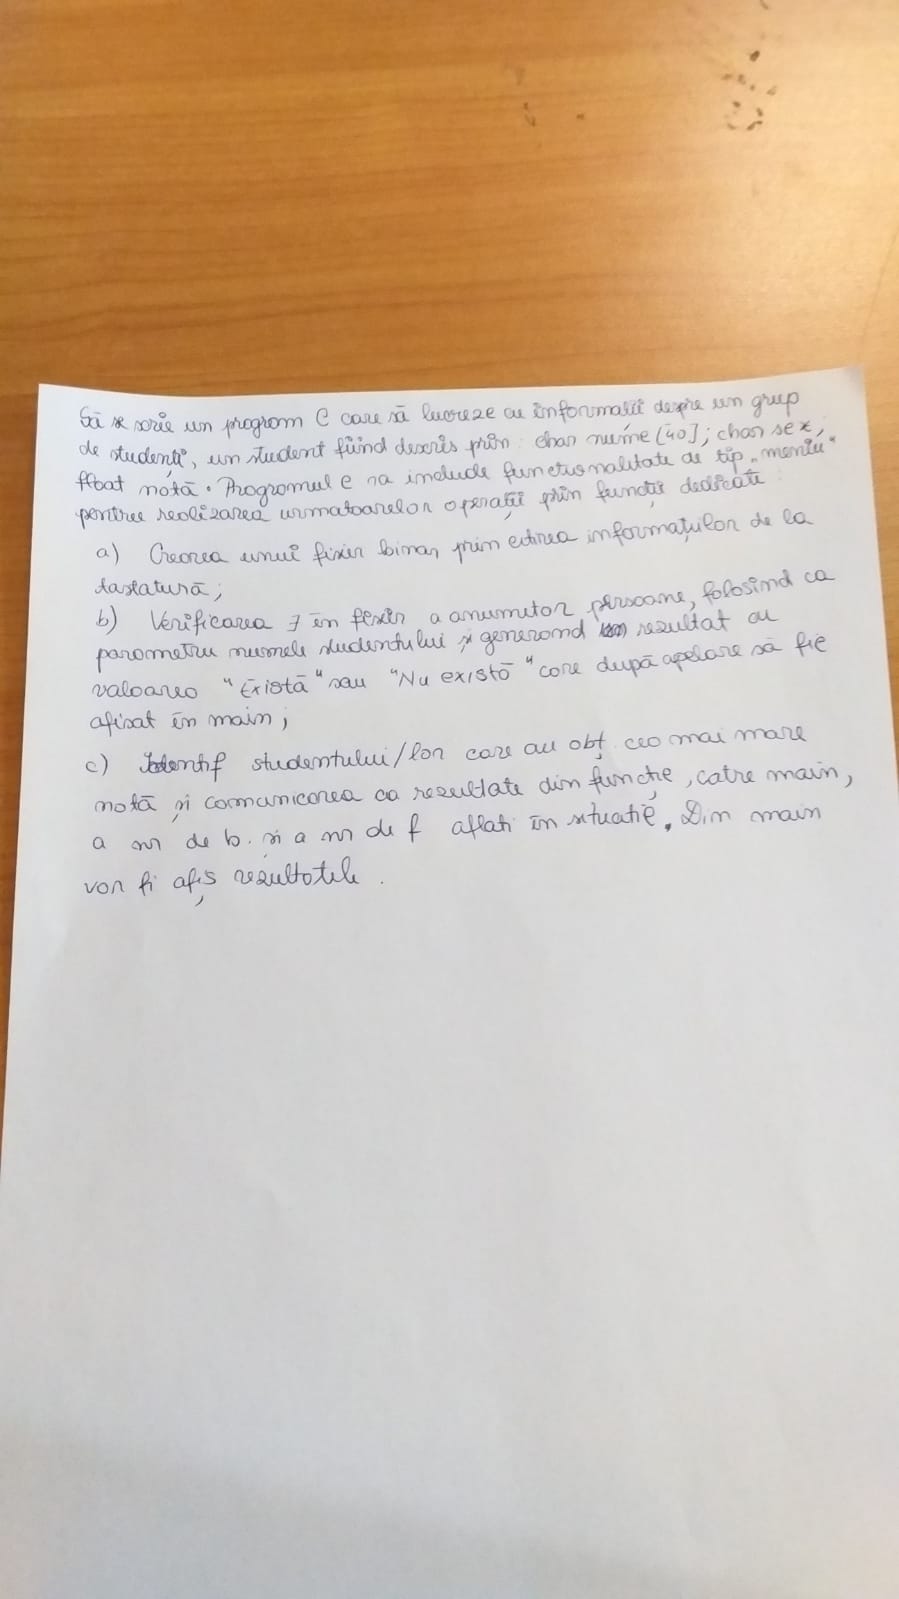 Să se scrie un program C care să lucreze cu informații despre un grup
de studenți, un student fiind descris prin: char nume [40]; char sex,
float notă. Programul C va include functionalitate de tip „meniu"
pentru realizarea urmatoarelor operații prin funcții dedicate:
a) Crearea unui fișier binar, prin citirea informațiilor de la
tastatură;
b) Verificarea ∃ în fișier a anumitor persoane, folosind ca
parametru numele studentului și generand rezultat cu
valoarea "Există" sau "Nu există" care după apelare să fie
afișat în main;
c) Identif studentului/lor care au obț. cea mai mare
notă și comunicarea ca rezultate din funcție, catre main,
a nr de b. și a nr de f aflati în situatie. Din main
vor fi afiș rezultatele.